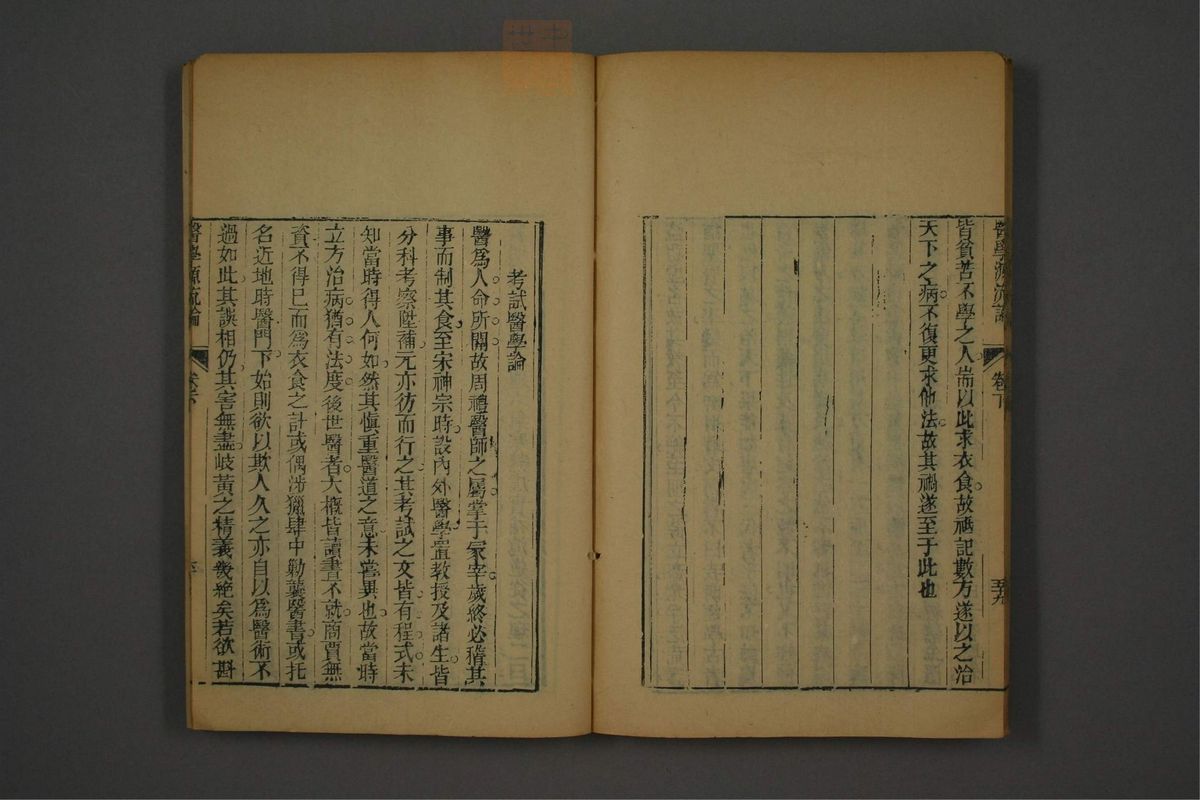 醫學源流論 卷下 五九
皆貧苦不學之人耑以此求衣食故祗記數方遂以之治
天下之病不復更求他法故其禍遂至于此也
考試醫學論
醫爲人命所關故周禮醫師之屬掌于冢宰歲終必稽其
事而制其食至宋神宗時設內外醫學置教授及諸生皆
分科考察陞補元亦彷而行之其考試之文皆有程式未
知當時得人何如然其慎重醫道之意未嘗異也故當時
立方治病猶有法度後世醫者大概皆讀書不就商賈無
資不得已而爲衣食之計或偶涉獵肆中勦襲醫書或托
名近地時醫門下始則欲以欺人久之亦自以爲醫術不
過如此其誤相仍其害無盡岐黃之精義幾絶矣若欲斟
醫學源流論 卷下